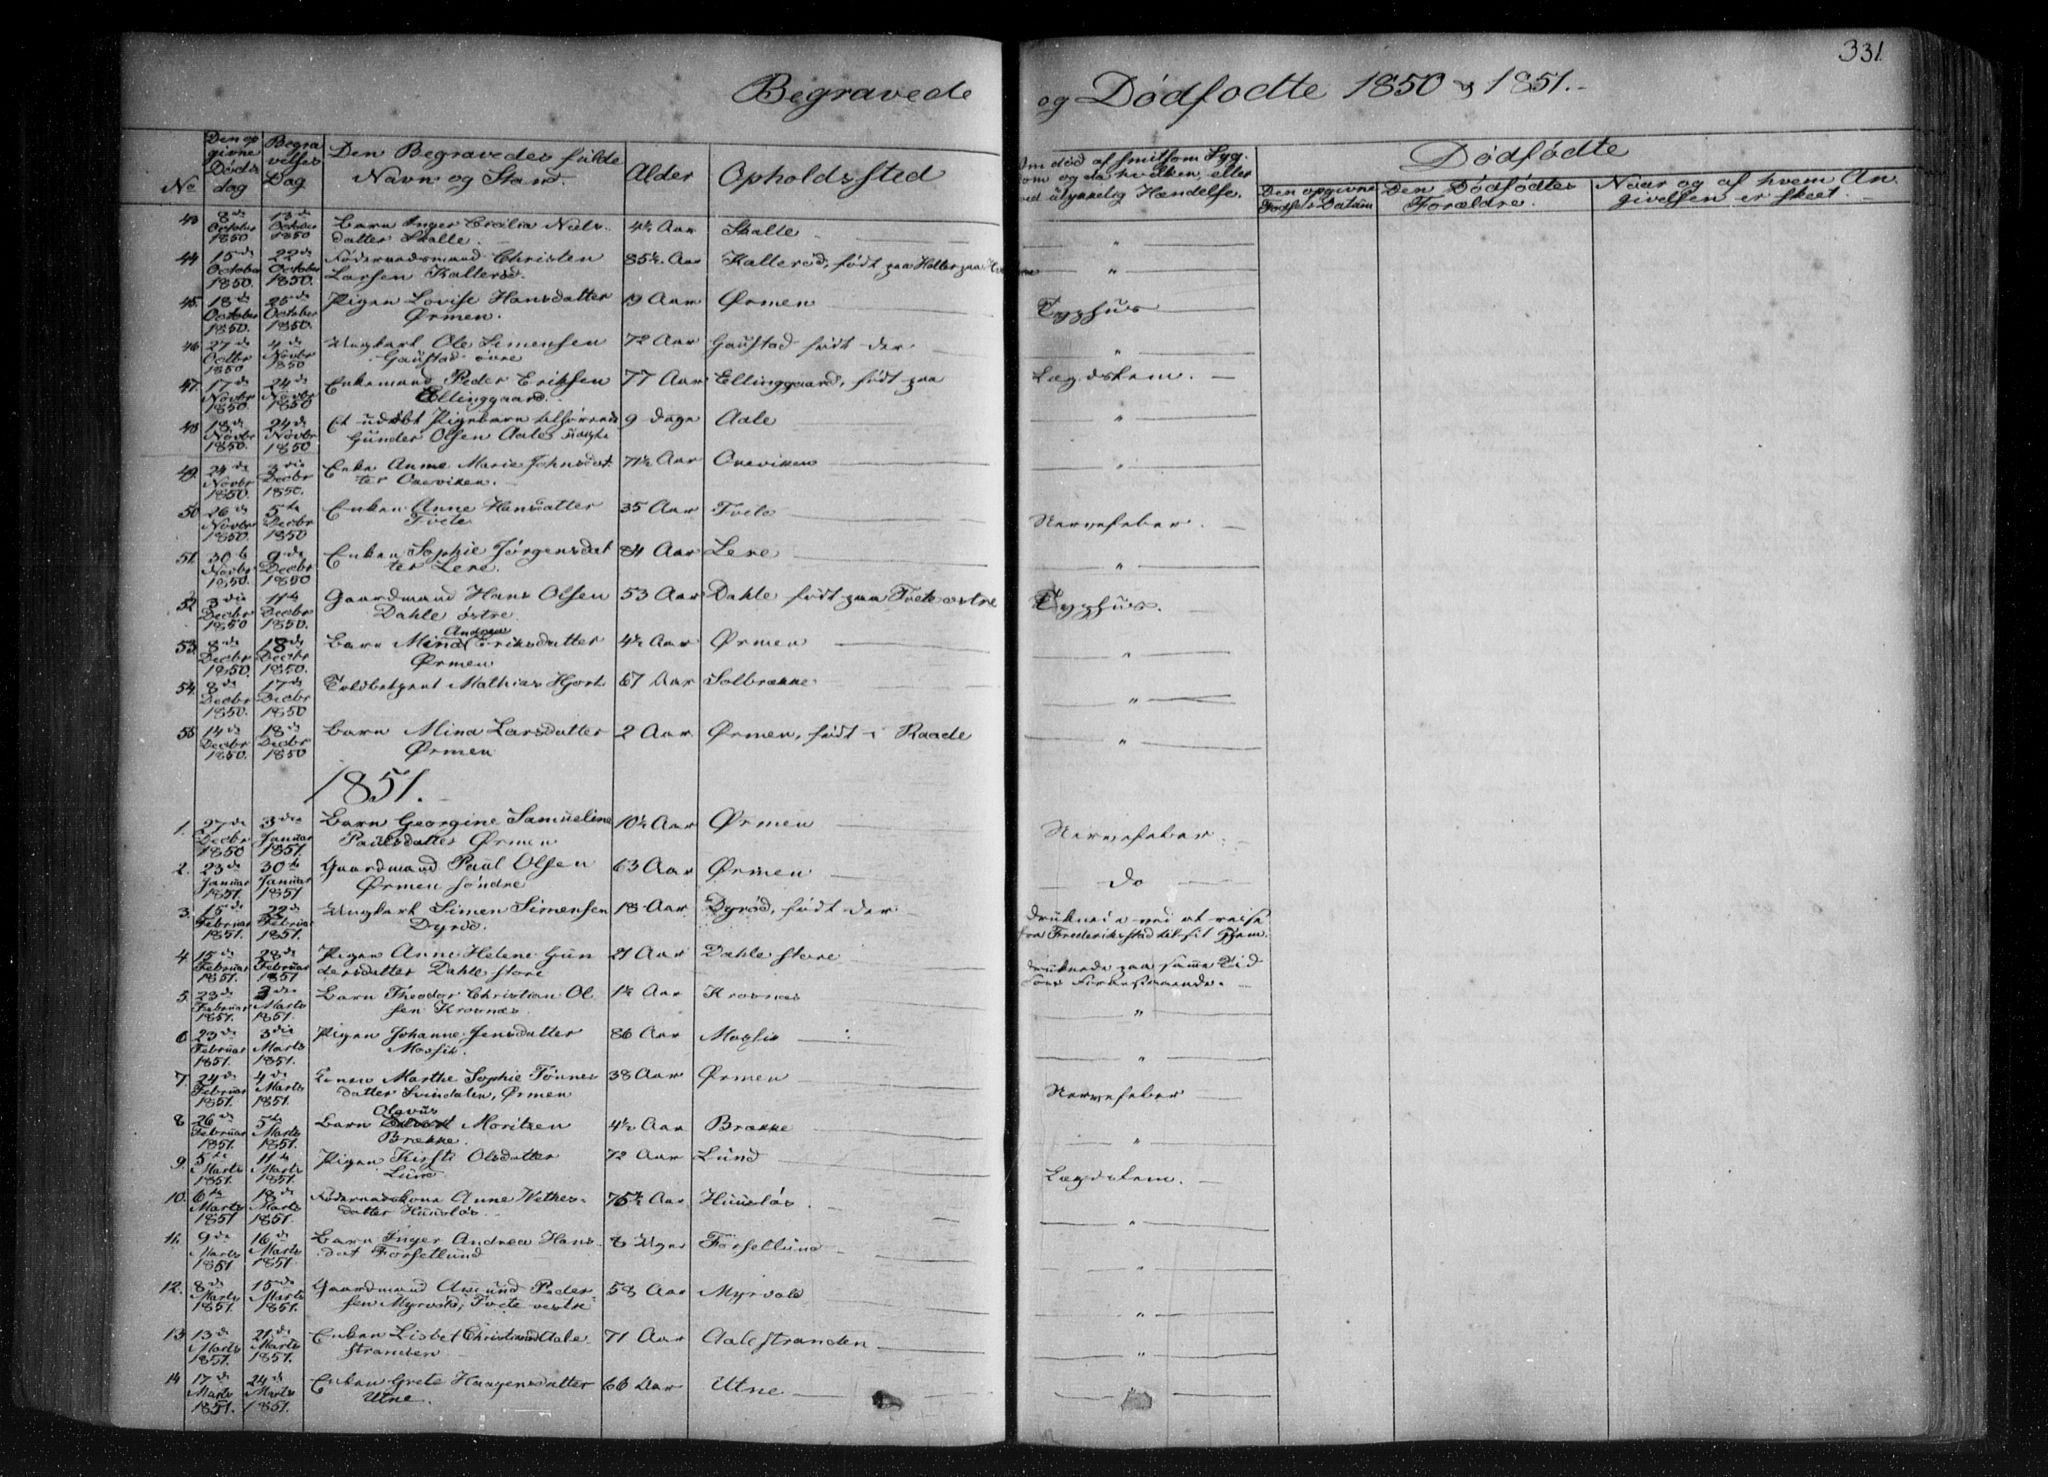 331
Begravede og Dødfødte 1850 & 1851.
No
Den opgivne Dødsdag
Begravelses Dag
Den Begravedes fulde Navn og Stand.
Alder
Opholdssted
Om død af smitsom Sygdom og da hvilken, eller ved ulykkelig Hændelse.
Dødfødte
Den opgivne Fødsels Datum
Den Dødfødtes Forældre.
Naar og af hvem Angivelsen er skeet.
43 8de October 1850 13de October 1850 Barn Inger Cecilia Nielsdatter Skalle. 4½ Aar Skalle "
44 15de October 1850. 22de October 1850. Føderaadsmand Christen Larsen Kallerød. 85½ Aar Kallerød, født paa Holter paa "
45. 18de October 1850. 25de October 1850. Pigen Lovise Hansdatter Ørmen. 19 Aar Ørmen Typhus
46 27de Octbr 1850 4de Novbr 1850 Ungkarl Ole Simensen Gaustad øvre 72 Aar Gaustad født der "
47. 17de Novbr 1850. 24de Novbr 1850 Enkemand Peder Eriksen Ellinggaard. 77 Aar Ellinggaard, født paa Lægdslem.
48 18de Novbr 1850. 24de Novbr 1850 Et udøbt Pigebarn tilhørende Gunder Olsen Aales 9 Dage Aale "
49. 24de Novbr 1850. 3die Decbr 1850. Enke Anne Marie Johnsdatter Oneviken. 71½ Aar Oneviken "
50 26de Novbr 1850. 5te Decbr 1850 Enken Anne Hansdatter Tvete 35 Aar Tvete Nervefeber.
51. 30te Novbr 1850. 9de Decbr 1850 Enken Sophie Jørgensdatter Lere. 84 Aar Lere "
52 3die Decbr 1850 11te Decbr 1850. Gaardmand Hans Olsen Dahle østre. 53 Aar Dahle født paa Tvete østre Typhus.
53. 8de Decbr 1850. 18de Decbr 1850. Barn Mina Andrea Eriksdatter Ørmen 4½ Aar Ørmen "
54. 8de Decbr 1850. 17de Decbr 1850 Toldbetjent Mathias Hjort 67 Aar Solbrække "
55 14de Decbr 1850. 18de Decbr 1850 Barn Mina Larsdatter Ørmen 2 Aar Ørmen, født i Raade "
1851.
1. 27de Decbr 1850 3die Januar 1851. Barn Georgine Samueline Paulsdatter Ørmen 10½ Aar Ørmen Nervefeber.
2. 23de Januar 1851. 30te Januar 1851 Gaardmand Paul Olsen Ørmen søndre 63 Aar Ørmen do
3. 15de Februar 1851. 22de Februar 1851. Ungkarl Simen Simensen Dyrød. 18 Aar Dyrød, født der druknede ved at reise fra Frederikstad til sit Hjem.
4 15de Februar 1851. 28de Februar 1851 Pigen Anne Helene Gundersdatter Dahle store 21 Aar Dahle store druknede paa samme Tid som Forestaaende.
5. 23de Februar 1851. 3die Marts 1851. Barn Theodor Christian Olsen Krosnæs. 1½ Aar Krosnæs "
6 23de Februar 1851. 3die Marts 1851. Pigen Johanne Jensdatter Mossik. 86 Aar Mossik "
7. 24de Februar 1851. 4de Marts 1851. Konen Marthe Sophie Tønnesdatter Svindalen, Ørmen 38 Aar Ørmen Nervefeber
8 26de Februar 1851. 5te Marts 1851. Barn Olavus Moritzen Brække. 4½ Aar Brække "
9. 5te Marts 1851. 11te Marts 1851. Pigen Kirsti Olsdatter Lund 72 Aar Lund Lægdslem.
10. 6te Marts 1851 18de Marts 1851. Føderaadskone Anne Methesdatter Huusløs. 75½ Aar Huusløs "
11. 9de Marts 1851 16de Marts 1851. Barn Inger Andrea Hansdat. Forsetlund 8 Uger Forsetlund "
12. 8de Marts 1851. 15de Marts 1851. Gaardmand Amund Pedersen Myrvold, Tvete vestre 58 Aar Myrvold "
13 13de Marts 1851. 21de Marts 1851. Enken Lisbet Christiansd Aalestranden 71 Aar Aalestranden "
14 17de Marts 1851. 24de Marts 1851. Enken Grete Haagensdatter Utne. 66 Aar Utne "